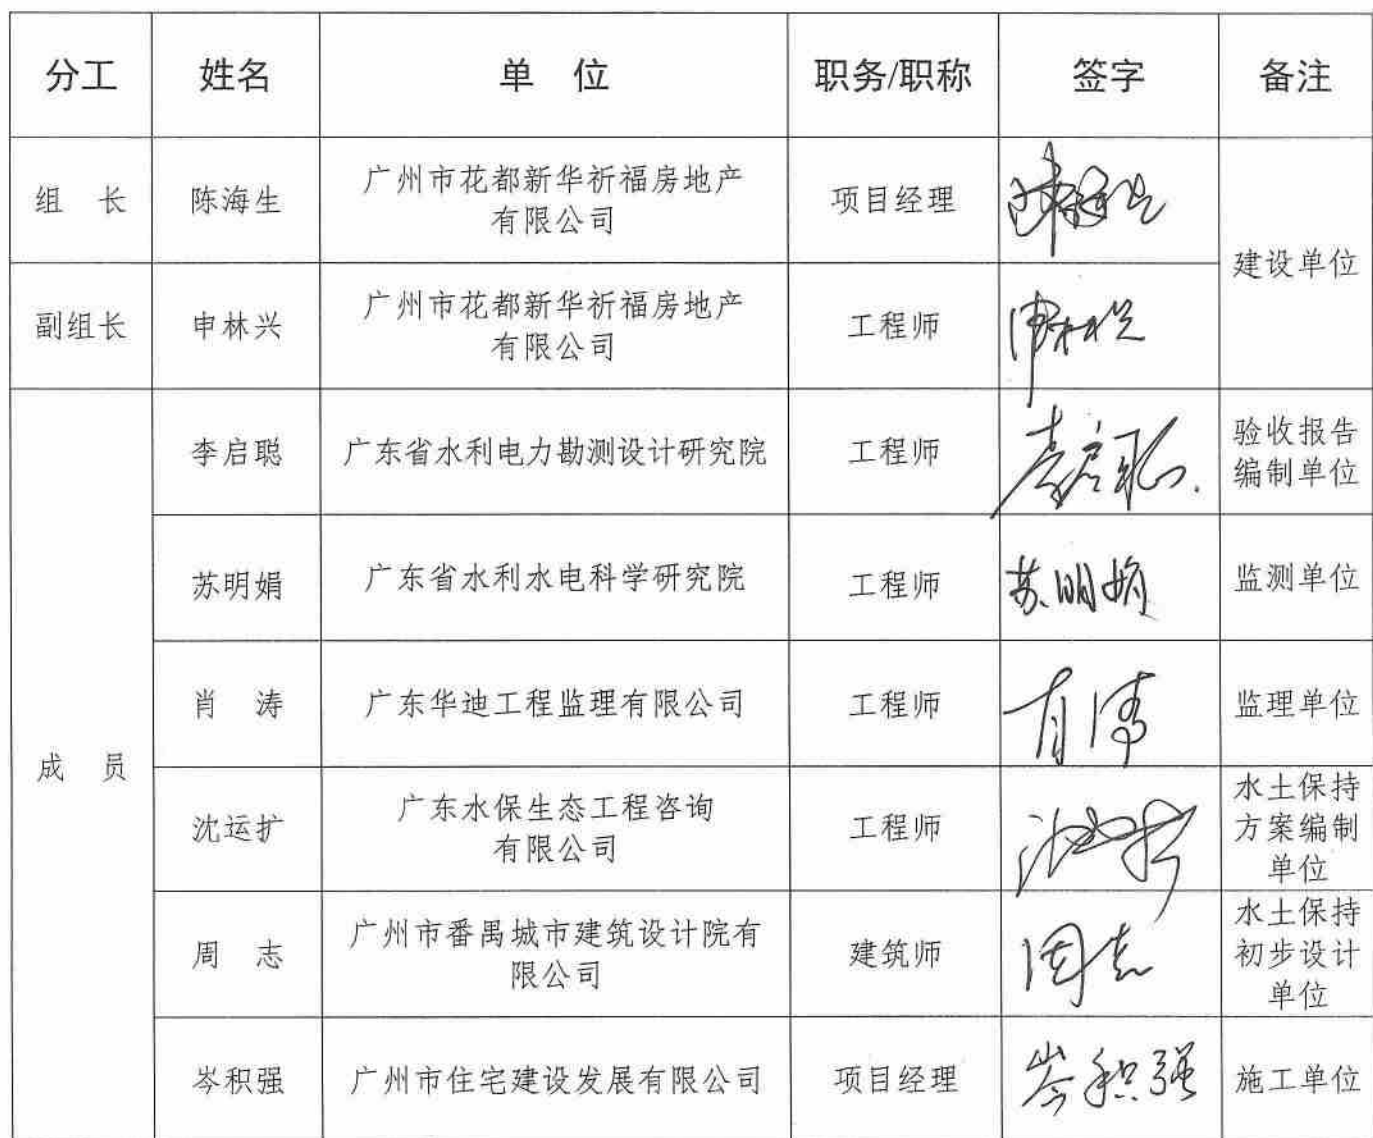 分工 姓名 单 位 职务/职称 签字 备注
组 长 陈海生 广州市花都新华祈福房地产
有限公司 项目经理 陈海生 建设单位
副组长 申林兴 广州市花都新华祈福房地产
有限公司 工程师 申林兴
成 员 李启聪 广东省水利电力勘测设计研究院 工程师 李启聪 验收报告
编制单位
苏明娟 广东省水利水电科学研究院 工程师 苏明娟 监测单位
肖 涛 广东华迪工程监理有限公司 工程师 肖涛 监理单位
沈运扩 广东水保生态工程咨询
有限公司 工程师 沈运扩 水土保持
方案编制
单位
周 志 广州市番禺城市建筑设计院有
限公司 建筑师 周志 水土保持
初步设计
单位
岑积强 广州市住宅建设发展有限公司 项目经理 岑积强 施工单位